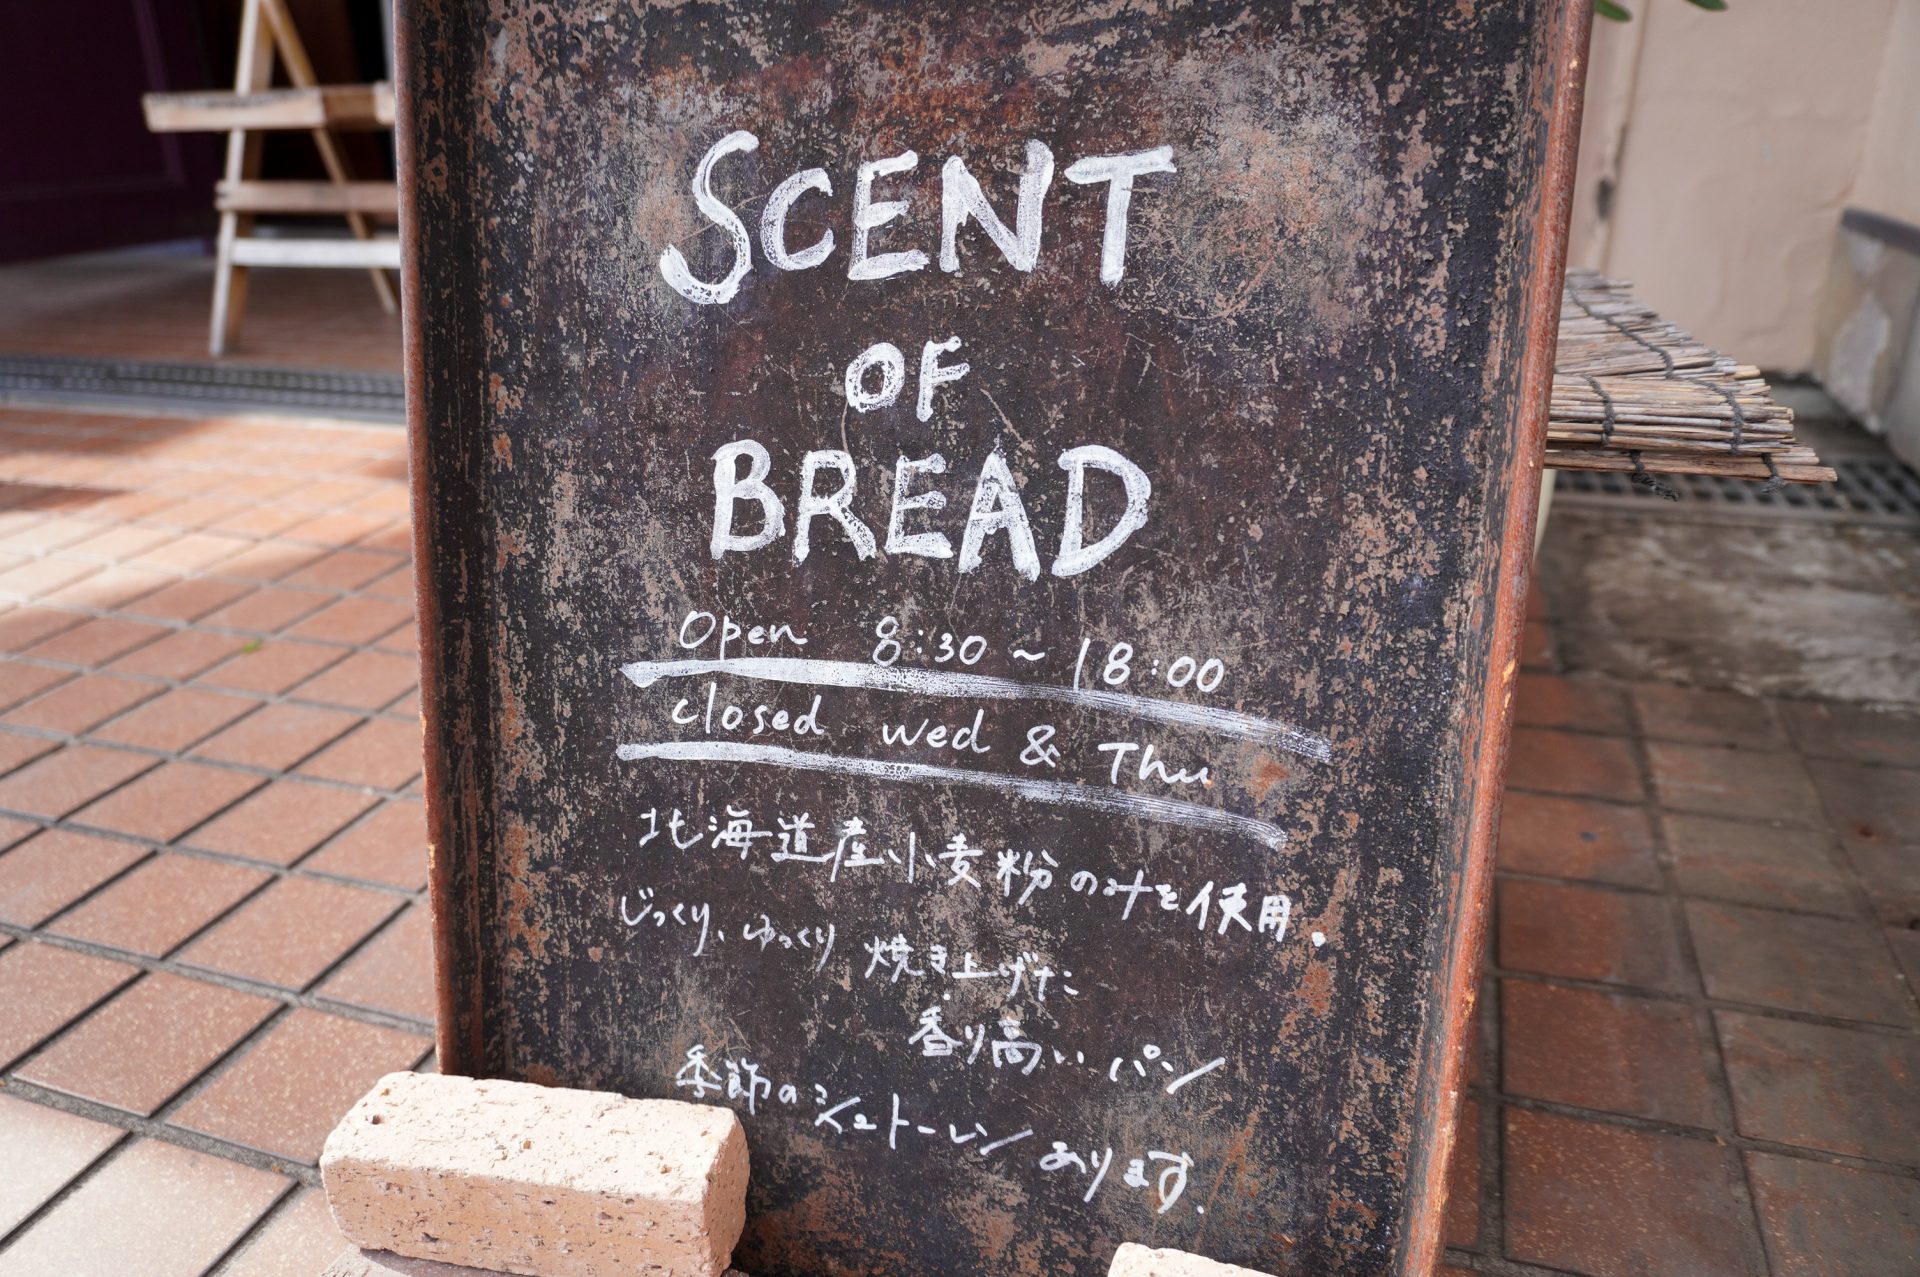 SCENT
OF
BREAD
Open 8:30 ~ 18:00
closed wed & Thu
北海道産小麦粉のみを使用.
じっくり、ゆっくり焼き上げた
香り高いパン
季節のシュトーレンあります.